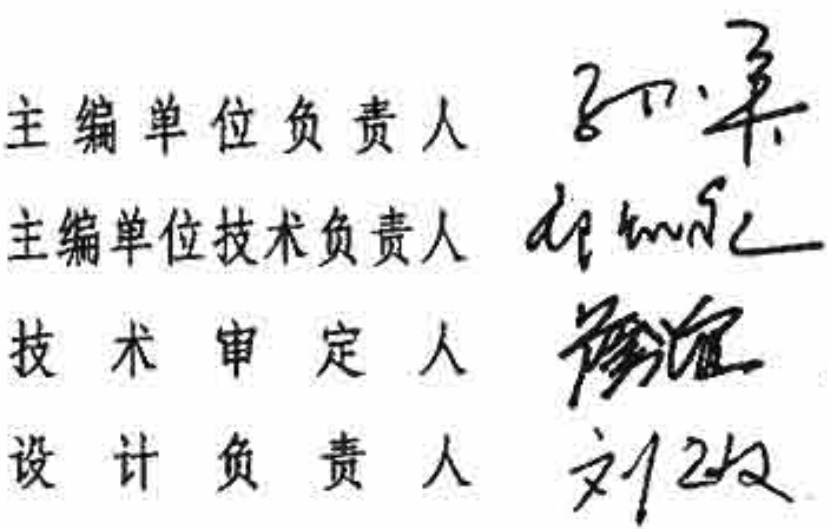 主编单位负责人
主编单位技术负责人
技术审定人
设计负责人 刘敏